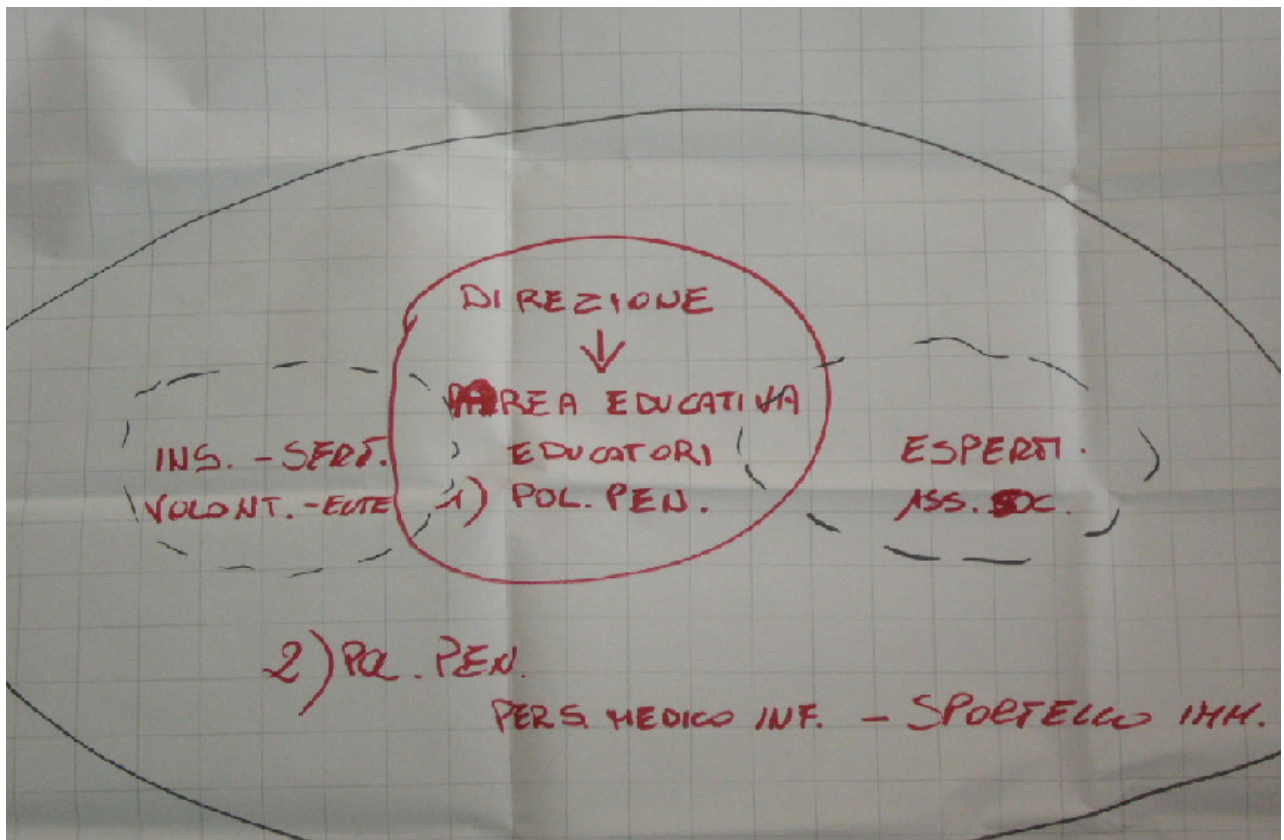 DIREZIONE
↓
AREA EDUCATIVA
EDUCATORI
1) POL. PEN.
INS. - SERT.
VOLONT. - ENTE
ESPERTI.
ASS. SOC.
2) POL. PEN.
PERS. MEDICO INF. - SPORTELLO IMM.